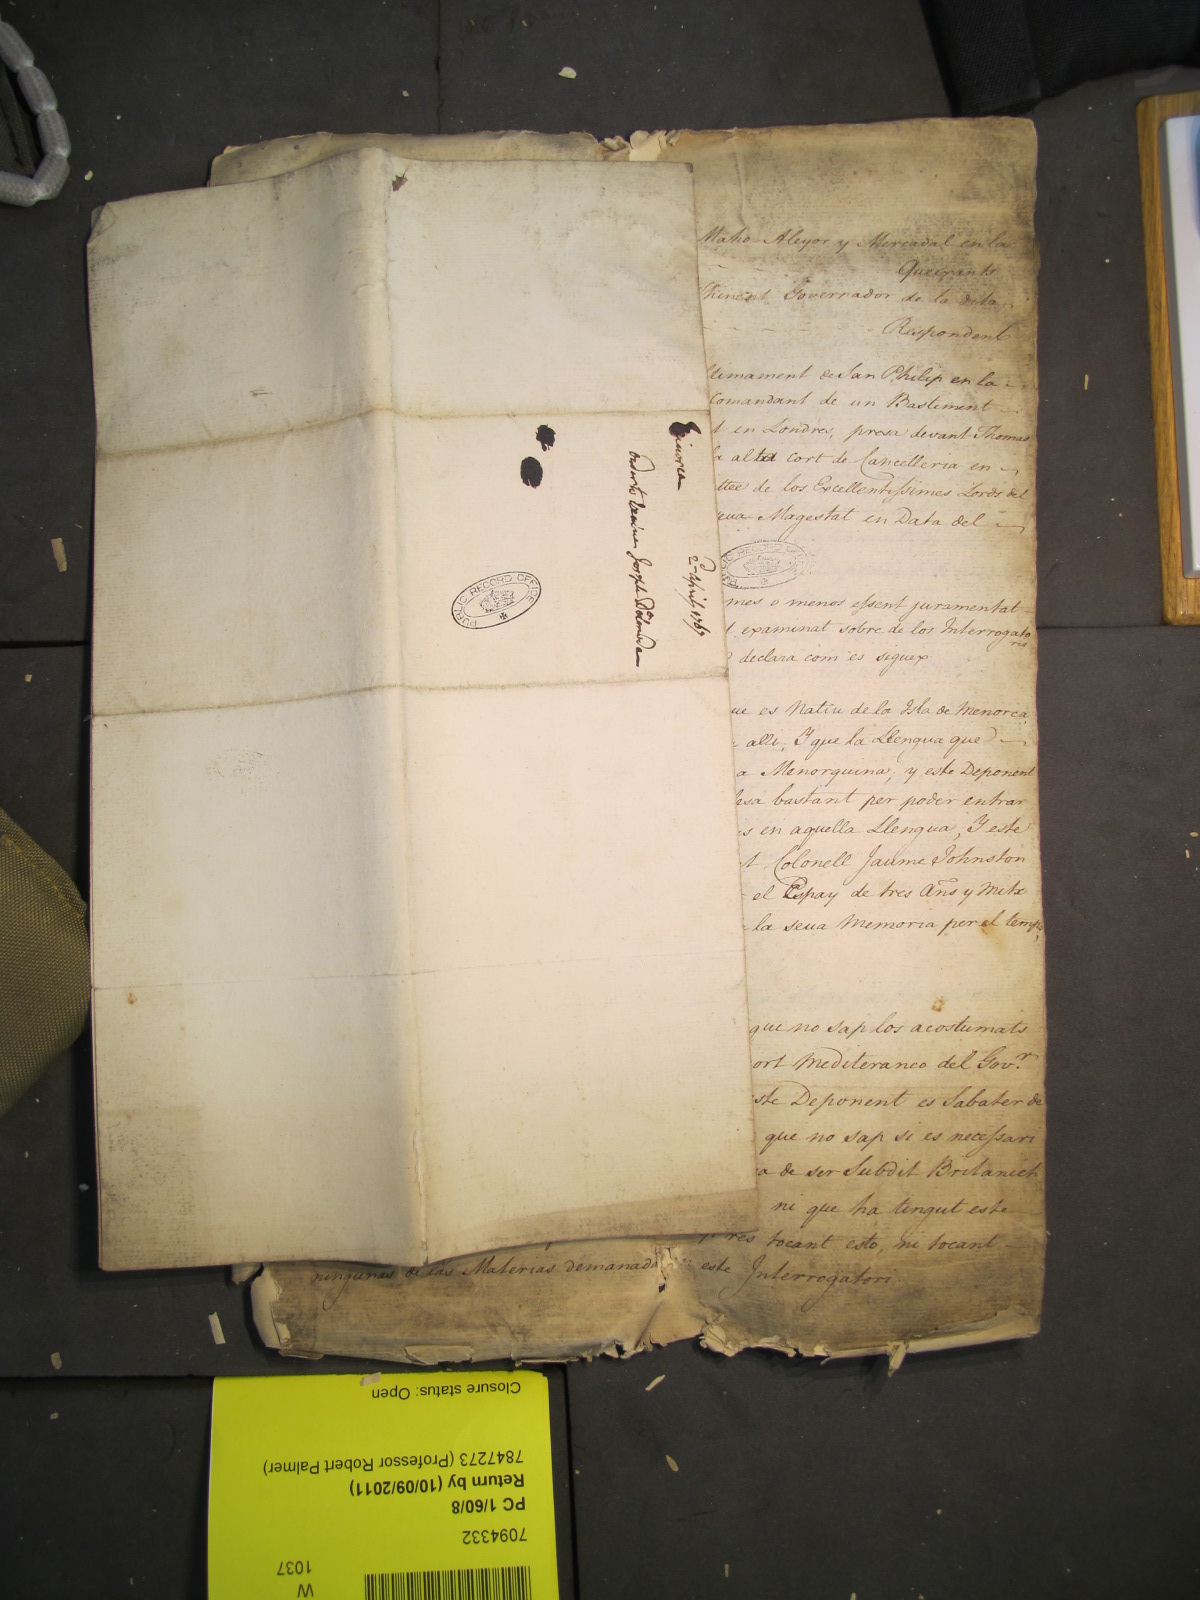 Maho Aleyor y Mercadal en la
Queixants
Governador de la dita
Respondent
San Philip en la
Comandant de un Bastiment
en Londres, presa devant Thomas
cort de Cancelleria en
de los Excellentissimes Lords del
Magestat en Data del
o menos essent juramentat
examinat sobre de los Interrogatoris
declara com es siguex
es Natiu de la Isla de Menorca,
alli, Y que la Llengua que
a Menorquina; y este Deponent
bastant per poder entrar
en aquella Llengua; Y este
Colonell Jaume Johnston
el Espay de tres Añs y Mitx
la seua Memoria per el temps,
que no sap los acostumats
Mediteraneo del Gov.r
Deponent es Sabater de
que no sap si es necessari
de ser Subdit Britanich
ni que ha tengut este
tocant esto, ni tocant
ningunas de las Materias demanadas
este Interrogatori
Minorca
2d April 1767
PUBLIC RECORD OFFICE
PUBLIC RECORD OFFICE
W
1037
7094332
PC 1/60/8
Return by (10/09/2011)
7847273 (Professor Robert Palmer)
Closure status: Open